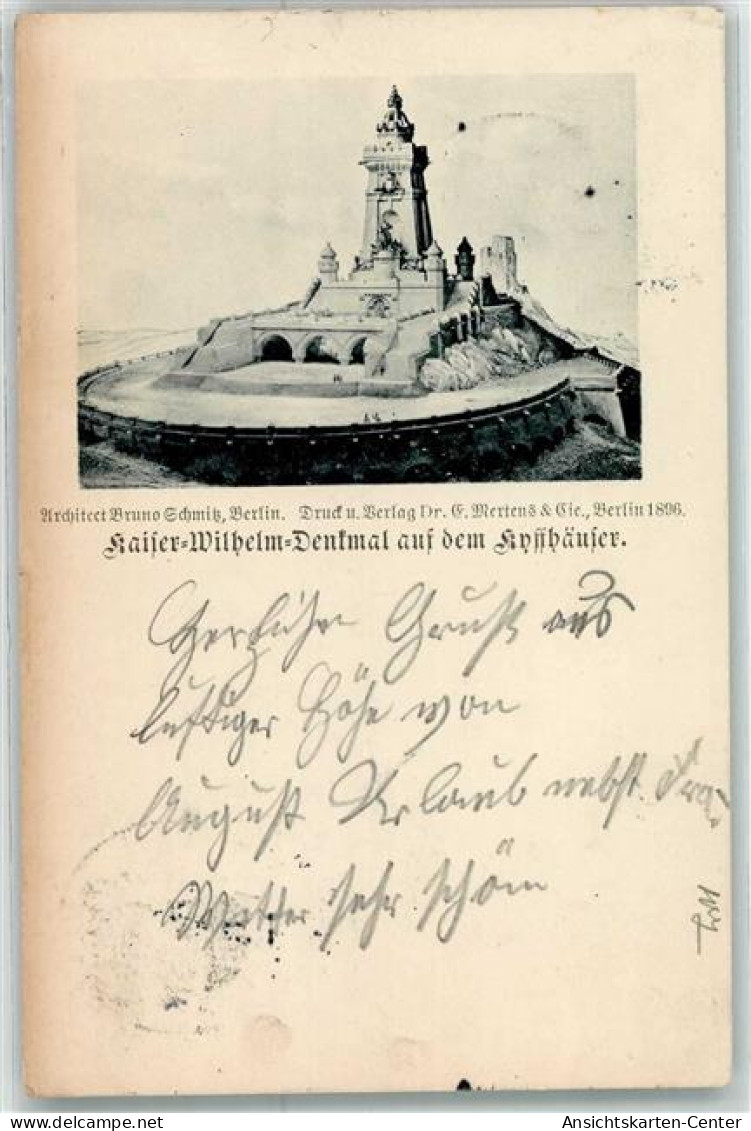 Architect Bruno Schmitz, Berlin. Druck u. Verlag Dr. E. Mertens & Cie., Berlin 1896.
Kaiser-Wilhelm-Denkmal auf dem Kyffhäuser.
Gruß aus
luftiger Höhe von
August Urlaub nebst Frau
Wetter sehr schön
Ansichtskarten-Center